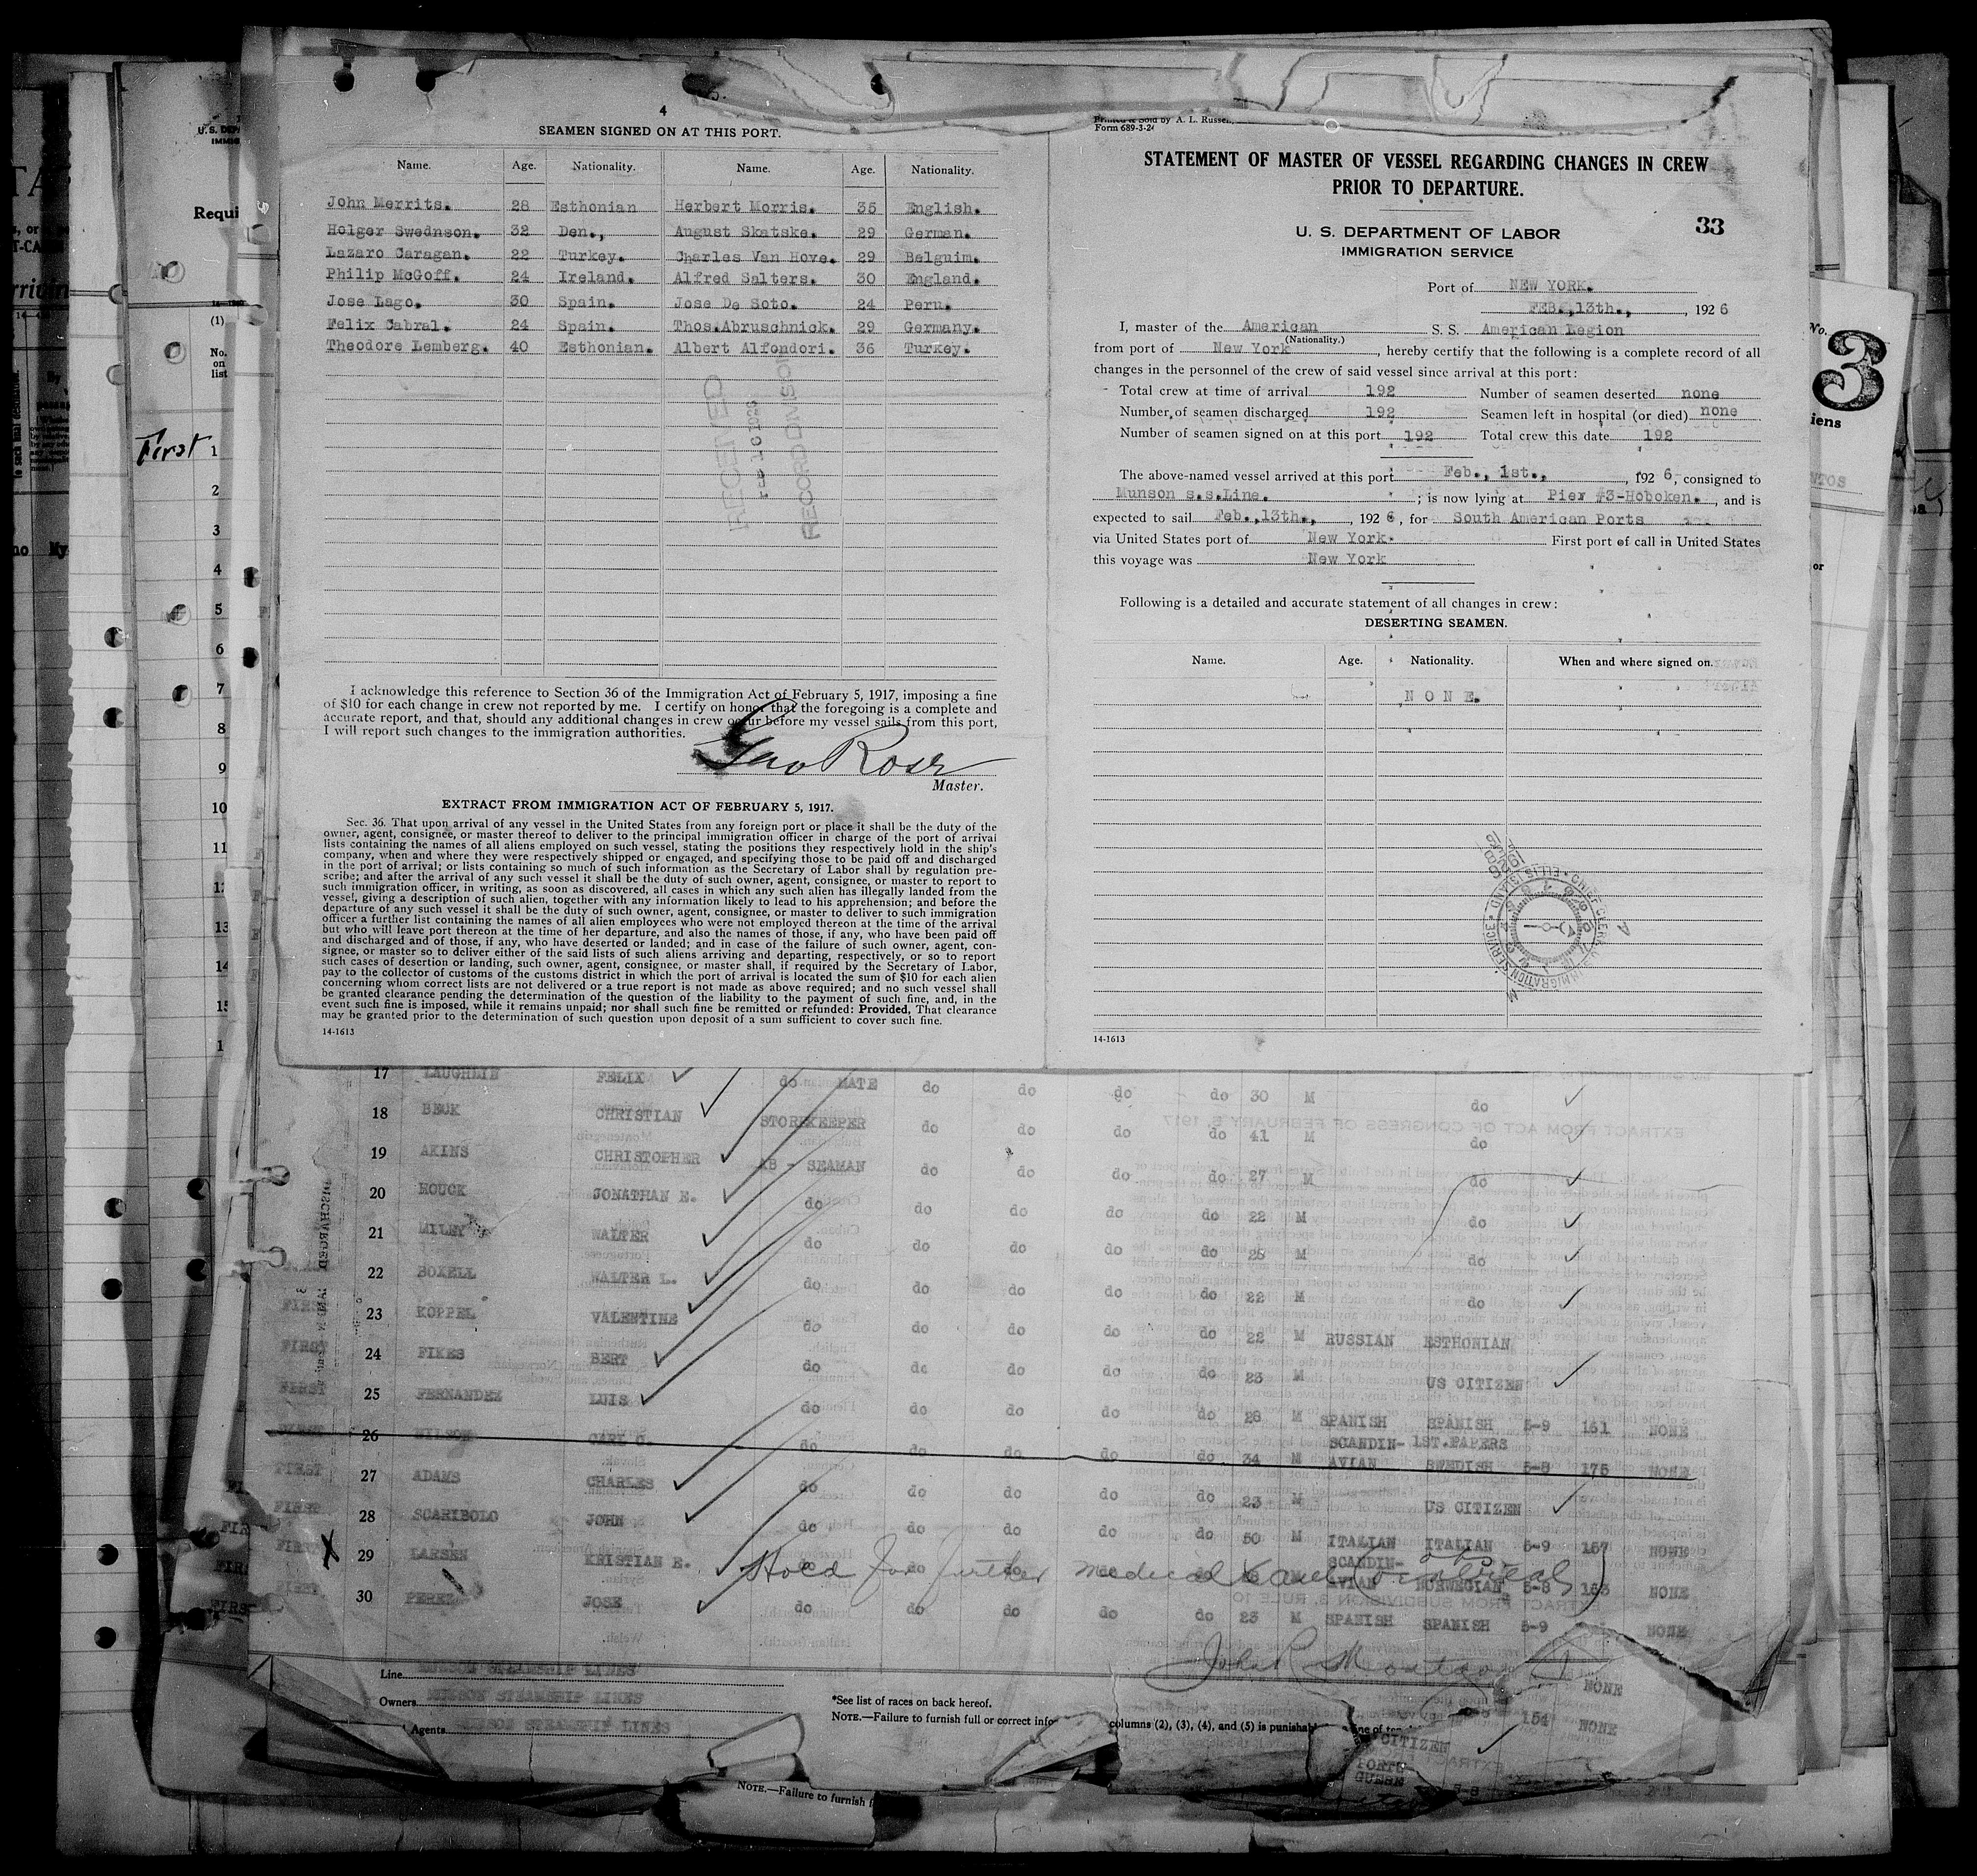 4
SEAMEN SIGNED ON AT THIS PORT.
Name. Age. Nationality. Name. Age. Nationality.
John Merrits. 28 Esthonian Herbert Morris. 35 English.
Holger Swednson. 32 Den., August Skatske. 29 German.
Lazaro Caragan. 22 Turkey. Charles Van Hove. 29 Belguim.
Philip McGoff. 24 Ireland. Alfred Salters. 30 England.
Jose Lago. 30 Spain. Jose De Soto. 24 Peru.
Felix Cabral. 24 Spain. Thos.Abruschnick. 29 Germany.
Theodore Lemberg. 40 Esthonian. Albert Alfondori. 36 Turkey.
RECEIVED
RECORD DIVISION
I acknowledge this reference to Section 36 of the Immigration Act of February 5, 1917, imposing a fine
of $10 for each change in crew not reported by me. I certify on honor that the foregoing is a complete and
accurate report, and that, should any additional changes in crew occur before my vessel sails from this port,
I will report such changes to the immigration authorities.
Geo Rose
Master.
EXTRACT FROM IMMIGRATION ACT OF FEBRUARY 5, 1917.
Sec. 36. That upon arrival of any vessel in the United States from any foreign port or place it shall be the duty of the
owner, agent, consignee, or master thereof to deliver to the principal immigration officer in charge of the port of arrival
lists containing the names of all aliens employed on such vessel, stating the positions they respectively hold in the ship's
company, when and where they were respectively shipped or engaged, and specifying those to be paid off and discharged
in the port of arrival; or lists containing so much of such information as the Secretary of Labor shall by regulation pre-
scribe; and after the arrival of any such vessel it shall be the duty of such owner, agent, consignee, or master to report to
such immigration officer, in writing, as soon as discovered, all cases in which any such alien has illegally landed from the
vessel, giving a description of such alien, together with any information likely to lead to his apprehension; and before the
departure of any such vessel it shall be the duty of such owner, agent, consignee, or master to deliver to such immigration
officer a further list containing the names of all alien employees who were not employed thereon at the time of the arrival
but who will leave port thereon at the time of her departure, and also the names of those, if any, who have been paid off
and discharged and of those, if any, who have deserted or landed; and in case of the failure of such owner, agent, con-
signee, or master so to deliver either of the said lists of such aliens arriving and departing, respectively, or so to report
such cases of desertion or landing, such owner, agent, consignee, or master shall, if required by the Secretary of Labor,
pay to the collector of customs of the customs district in which the port of arrival is located the sum of $10 for each alien
concerning whom correct lists are not delivered or a true report is not made as above required; and no such vessel shall
be granted clearance pending the determination of the question of the liability to the payment of such fine, and, in the
event such fine is imposed, while it remains unpaid; nor shall such fine be remitted or refunded: Provided, That clearance
may be granted prior to the determination of such question upon deposit of a sum sufficient to cover such fine.
14-1613
Printed & Sold by A. L. Russell,
Form 689-3-24
STATEMENT OF MASTER OF VESSEL REGARDING CHANGES IN CREW
PRIOR TO DEPARTURE.
33
U. S. DEPARTMENT OF LABOR
IMMIGRATION SERVICE
Port of NEW YORK.
FEB.,13th., , 1926
I, master of the American S. S. American Legion
(Nationality.)
from port of New York , hereby certify that the following is a complete record of all
changes in the personnel of the crew of said vessel since arrival at this port:
Total crew at time of arrival 192 Number of seamen deserted none
Number of seamen discharged 192 Seamen left in hospital (or died) none
Number of seamen signed on at this port 192 Total crew this date 192
The above-named vessel arrived at this port Feb., 1st., , 1926, consigned to
Munson s.s.Line. ; is now lying at Pier #3-Hoboken. , and is
expected to sail Feb.,13th., , 1926, for South American Ports
via United States port of New York. First port of call in United States
this voyage was New York
Following is a detailed and accurate statement of all changes in crew:
DESERTING SEAMEN.
Name. Age. Nationality. When and where signed on.
NONE.
14-1613
Requi
(1)
No.
on
list
First 1
2
3
4
5
6
7
8
9
10
11
13
14
No.
3
iens
17 LAUGHLIN FELIX do MATE do do do do 30 M do
18 BECK CHRISTIAN STOREKEEPER do do do do 41 M do
19 AKINS CHRISTOPHER AB - SEAMAN do do do do 27 M do
20 HOUCK JONATHAN E. do do do do do 22 M do
21 MILEY WALTER do do do do do 25 M do
22 BOXELL WALTER L. do do do do do 22 M do
FIRST 23 KOPPEL VALENTINE do do do do do 22 M RUSSIAN ESTHONIAN
FIRST 24 FIKES BERT do do do do do 23 M US CITIZEN
FIRST 25 FERNANDEZ LUIS do do do do do 28 M SPANISH SPANISH 5-9 151 NONE
FIRST 26 WILSON CARL G. do do do do do 34 M SCANDIN-AVIAN 1ST.PAPERS SWEDISH 5-8 175 NONE
FIRST 27 ADAMS CHARLES do do do do do 23 M US CITIZEN
FIRST 28 SCARIBOLO JOHN do do do do do 50 M ITALIAN ITALIAN 5-9 157 NONE
FIRST X 29 LARSEN KRISTIAN E. do do M SCANDIN-AVIAN NORWEGIAN 5-8 163 NONE
Hold for further medical
FIRST 30 PEREZ JOSE do do do do do 23 M SPANISH SPANISH 5-9 NONE
NONE
154 NONE
Line MUNSON STEAMSHIP LINES
Owners MUNSON STEAMSHIP LINES
Agents MUNSON STEAMSHIP LINES
*See list of races on back hereof.
NOTE.—Failure to furnish full or correct info columns (2), (3), (4), and (5) is punishab
CITIZEN
PORTU
GUESE 5-8
NOTE.—Failure to furnish f